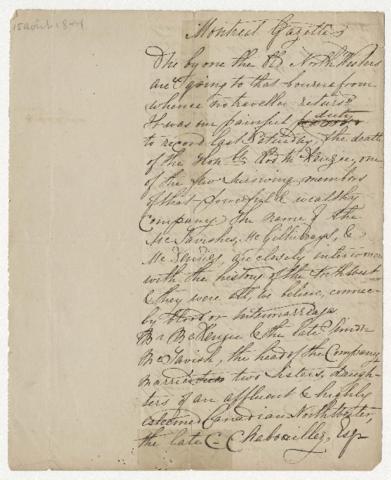 15 août 1844
Montreal Gazette
One by one the Old North Westers
are going to that bourne from
whence no traveller returns
It was our painful duty
to record last Saturday, the death
of the Hon ble Rod k McKenzie, one
of the few surviving members
of that powerful & wealthy
Company. The name of the
McTavishes, McGillivrays, &
McKenzies, are closely interwoven
with the history of the North West
& they were all, we believe, connected
by blood or intermarriage
Mr McKenzie & the late Simon
McTavish, the head of the Company
married two sisters, daugh-
ters of an affluent & highly
esteemed Canadian Northwester,
the late C. Chaboillez, Esqr